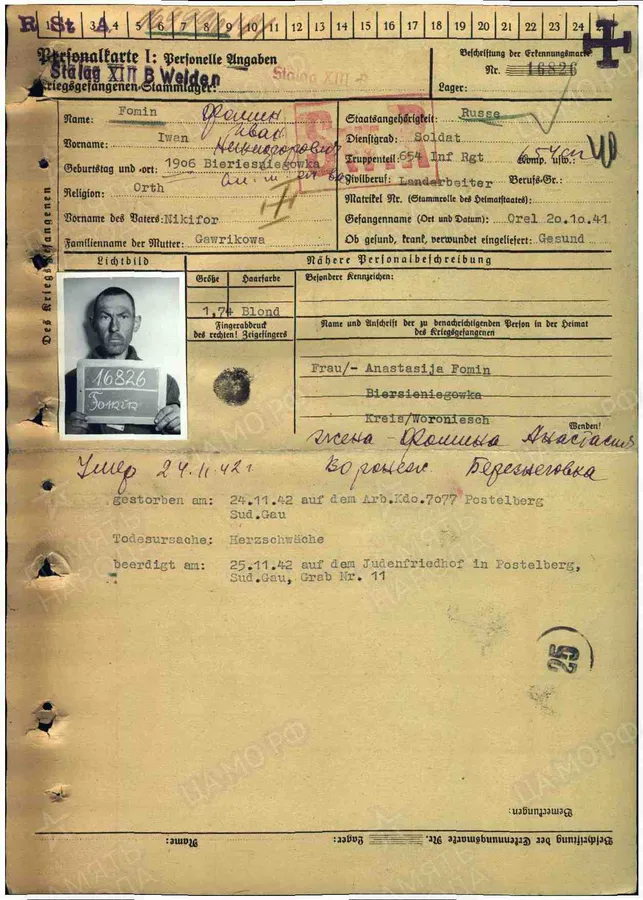 R St A
1 2 3 4 5 6 7 8 9 10 11 12 13 14 15 16 17 18 19 20 21 22 23 24 25
Personalkarte I: Personelle Angaben
Stalag XIII B Weiden
Kriegsgefangenen-Stammlager:
Stalag XIII
Beschriftung der Erkennungsmarke
Nr. 16826
Lager:
Des Kriegsgefangenen
Name: Fomin Фомин
Vorname: Iwan Иван
Никифорович
Geburtstag und -ort: 1906 Bieriesniegowka
Religion: Orth
Vorname des Vaters: Nikifor
Familienname der Mutter: Gawrikowa
SUR
Staatsangehörigkeit: Russe
Dienstgrad: Soldat
Truppenteil: 654 Inf Rgt Komp. usw.: 654 сп
Zivilberuf: Landarbeiter Berufs-Gr.:
Matrikel Nr. (Stammrolle des Heimatstaates):
Gefangennahme (Ort und Datum): Orel 20.10.41
Ob gesund, krank, verwundet eingeliefert: Gesund
Lichtbild
16826
Fomin
Nähere Personalbeschreibung
Größe Haarfarbe
1,74 Blond
Fingerabdruck
des rechten! Zeigefingers
Besondere Kennzeichen:
Name und Anschrift der zu benachrichtigenden Person in der Heimat
des Kriegsgefangenen
Frau/- Anastasija Fomin
Biersieniegowka
Kreis/Woroniesch
Wenden!
жена - Фомина Анастасия
Умер 24.11.42 г Воронеж Березнеговка
gestorben am: 24.11.42 auf dem Arb.Kdo.7077 Postelberg
Sud.Gau
Todesursache: Herzschwäche
beerdigt am: 25.11.42 auf dem Judenfriedhof in Postelberg,
Sud.Gau, Grab Nr. 11
25
Bemerkungen:
Beschriftung der Erkennungsmarke Nr. Lager: Name:
ПАМЯТЬ НАРОДА
ЦАМО.РФ